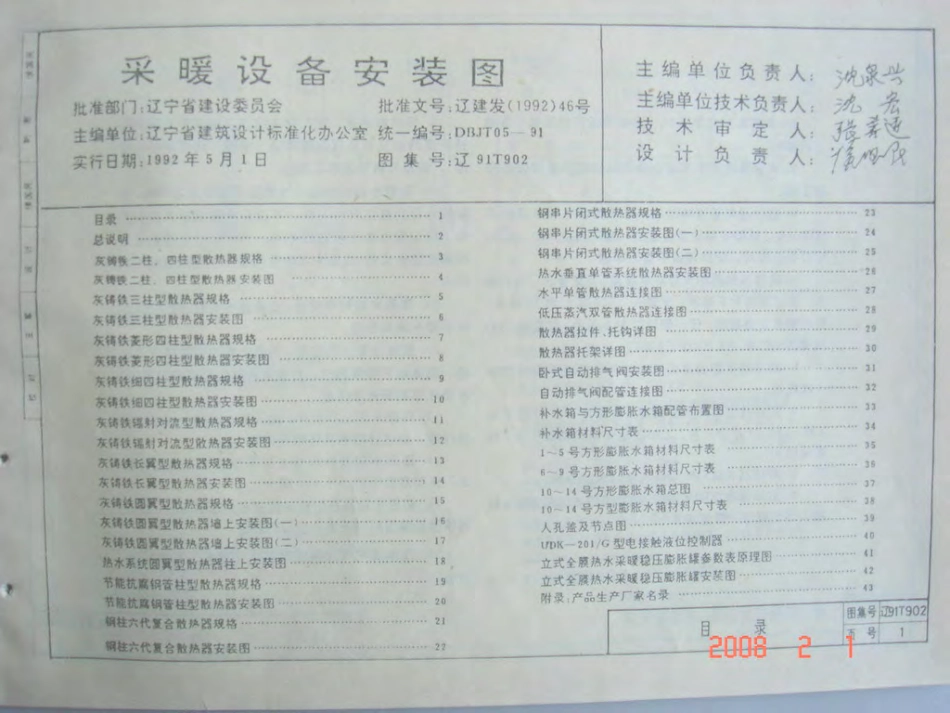 采暖设备安装图
批准部门:辽宁省建设委员会 批准文号:辽建发(1992)46号
主编单位:辽宁省建筑设计标准化办公室 统一编号:DBJT05-91
实行日期:1992年5月1日 图集号:辽91T902
主编单位负责人:
主编单位技术负责人:
技术审定人:
设计负责人:
目录 1
总说明 2
灰铸铁二柱、四柱型散热器规格 3
灰铸铁二柱、四柱型散热器安装图 4
灰铸铁三柱型散热器规格 5
灰铸铁三柱型散热器安装图 6
灰铸铁菱形四柱型散热器规格 7
灰铸铁菱形四柱型散热器安装图 8
灰铸铁细四柱型散热器规格 9
灰铸铁细四柱型散热器安装图 10
灰铸铁辐射对流型散热器规格 11
灰铸铁辐射对流型散热器安装图 12
灰铸铁长翼型散热器规格 13
灰铸铁长翼型散热器安装图 14
灰铸铁圆翼型散热器规格 15
灰铸铁圆翼型散热器墙上安装图(一) 16
灰铸铁圆翼型散热器墙上安装图(二) 17
热水系统圆翼型散热器柱上安装图 18
节能抗腐钢管柱型散热器规格 19
节能抗腐钢管柱型散热器安装图 20
钢柱六代复合散热器规格 21
钢柱六代复合散热器安装图 22
钢串片闭式散热器规格 23
钢串片闭式散热器安装图(一) 24
钢串片闭式散热器安装图(二) 25
热水垂直单管系统散热器安装图 26
水平单管散热器连接图 27
低压蒸汽双管散热器连接图 28
散热器拉件、托钩详图 29
散热器托架详图 30
卧式自动排气阀安装图 31
自动排气阀配管连接图 32
补水箱与方形膨胀水箱配管布置图 33
补水箱材料尺寸表 34
1~5号方形膨胀水箱材料尺寸表 35
6~9号方形膨胀水箱材料尺寸表 36
10~14号方形膨胀水箱总图 37
10~14号方型膨胀水箱材料尺寸表 38
人孔盖及节点图 39
UDK-201/G型电接触液位控制器 40
立式全膜热水采暖稳压膨胀罐参数表原理图 41
立式全膜热水采暖稳压膨胀罐安装图 42
附录:产品生产厂家名录 43
目录 图集号 辽91T902
页号 1
2008 2 1